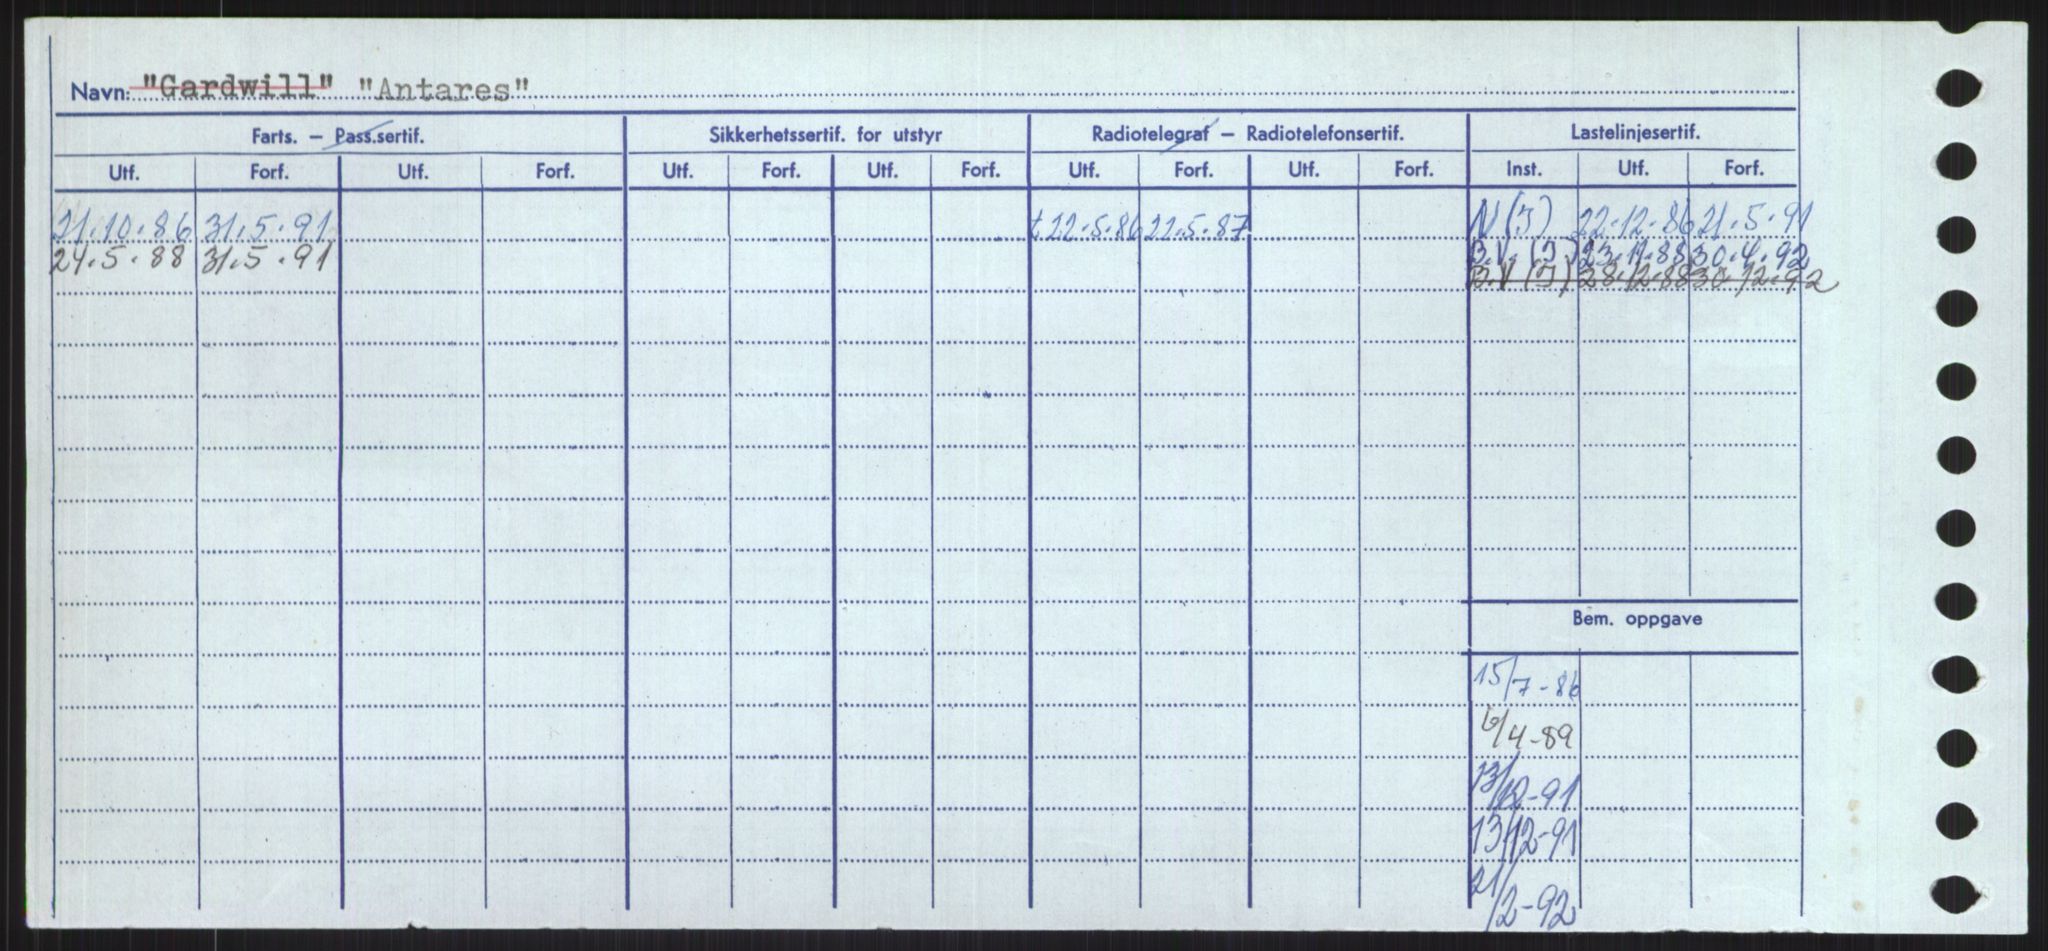 Navn: "Gardwill" "Antares"
Farts. – Pass.sertif. Sikkerhetssertif. for utstyr Radiotelegraf – Radiotelefonsertif. Lastelinjesertif.
Utf. Forf. Utf. Forf. Utf. Forf. Utf. Forf. Utf. Forf. Utf. Forf. Inst. Utf. Forf.
21.10.86 31.5.91 t 22.5.86 22.5.87 N (J) 22.12.86 21.5.91
24.5.88 31.5.91 B.V. (J) 23.11.88 30.4.92
B.V (J) 28.12.88 30.12.92
Bem. oppgave
15/7-86
6/4-89
13/12-91
13/12-91
21/2-92